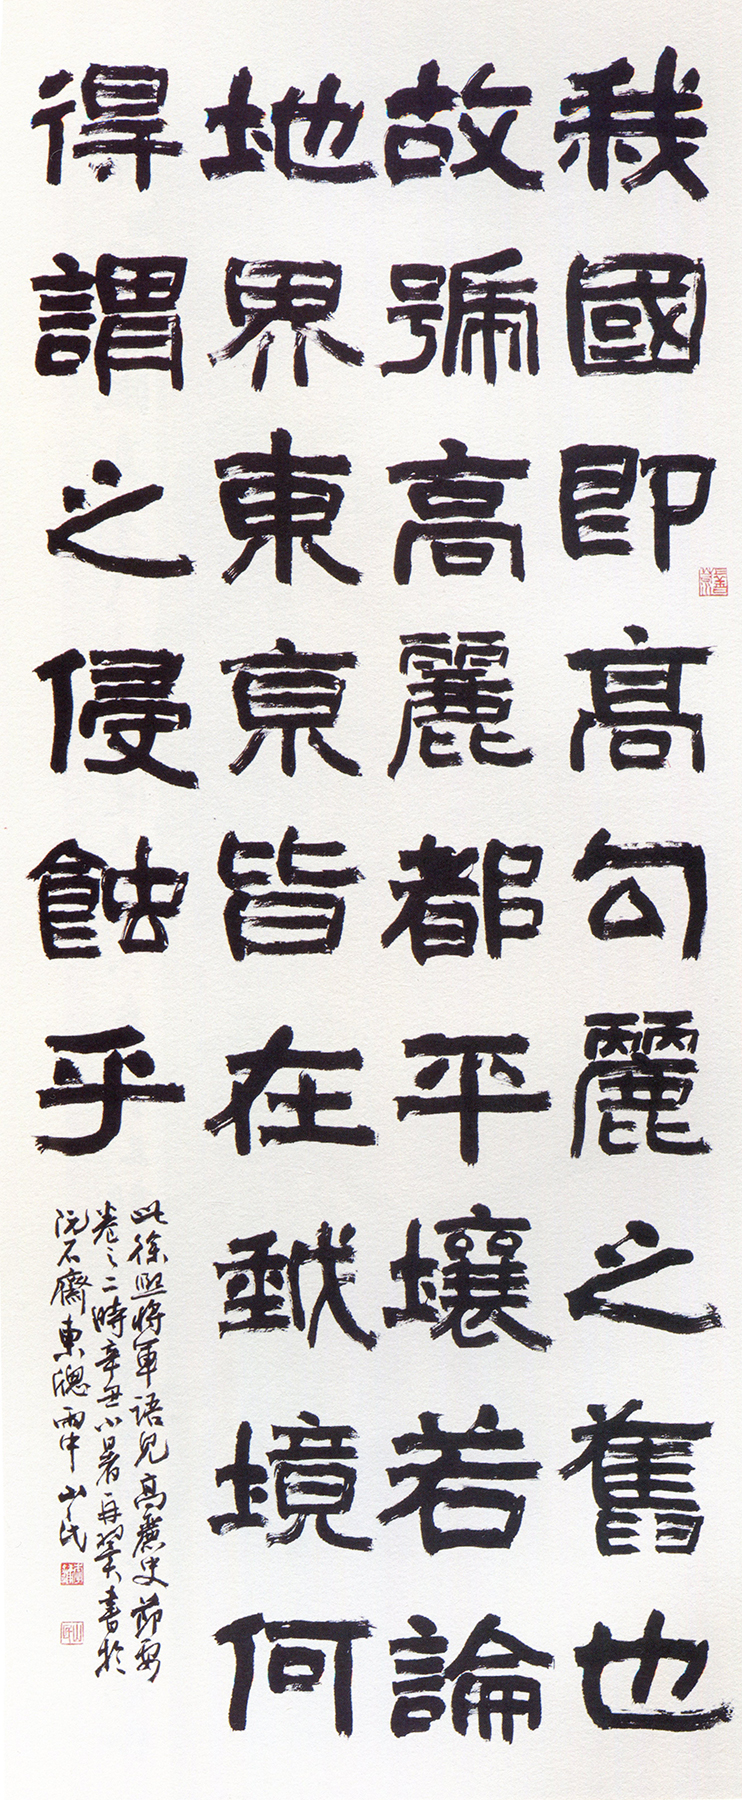 我國即高勾麗之舊也
故號高麗都平壤若論
地界東京皆在我境何
得謂之侵蝕乎
此徐熙將軍語見高麗史節要
卷之二時辛丑小暑再翼書於
阮石齋東牕雨中 山民